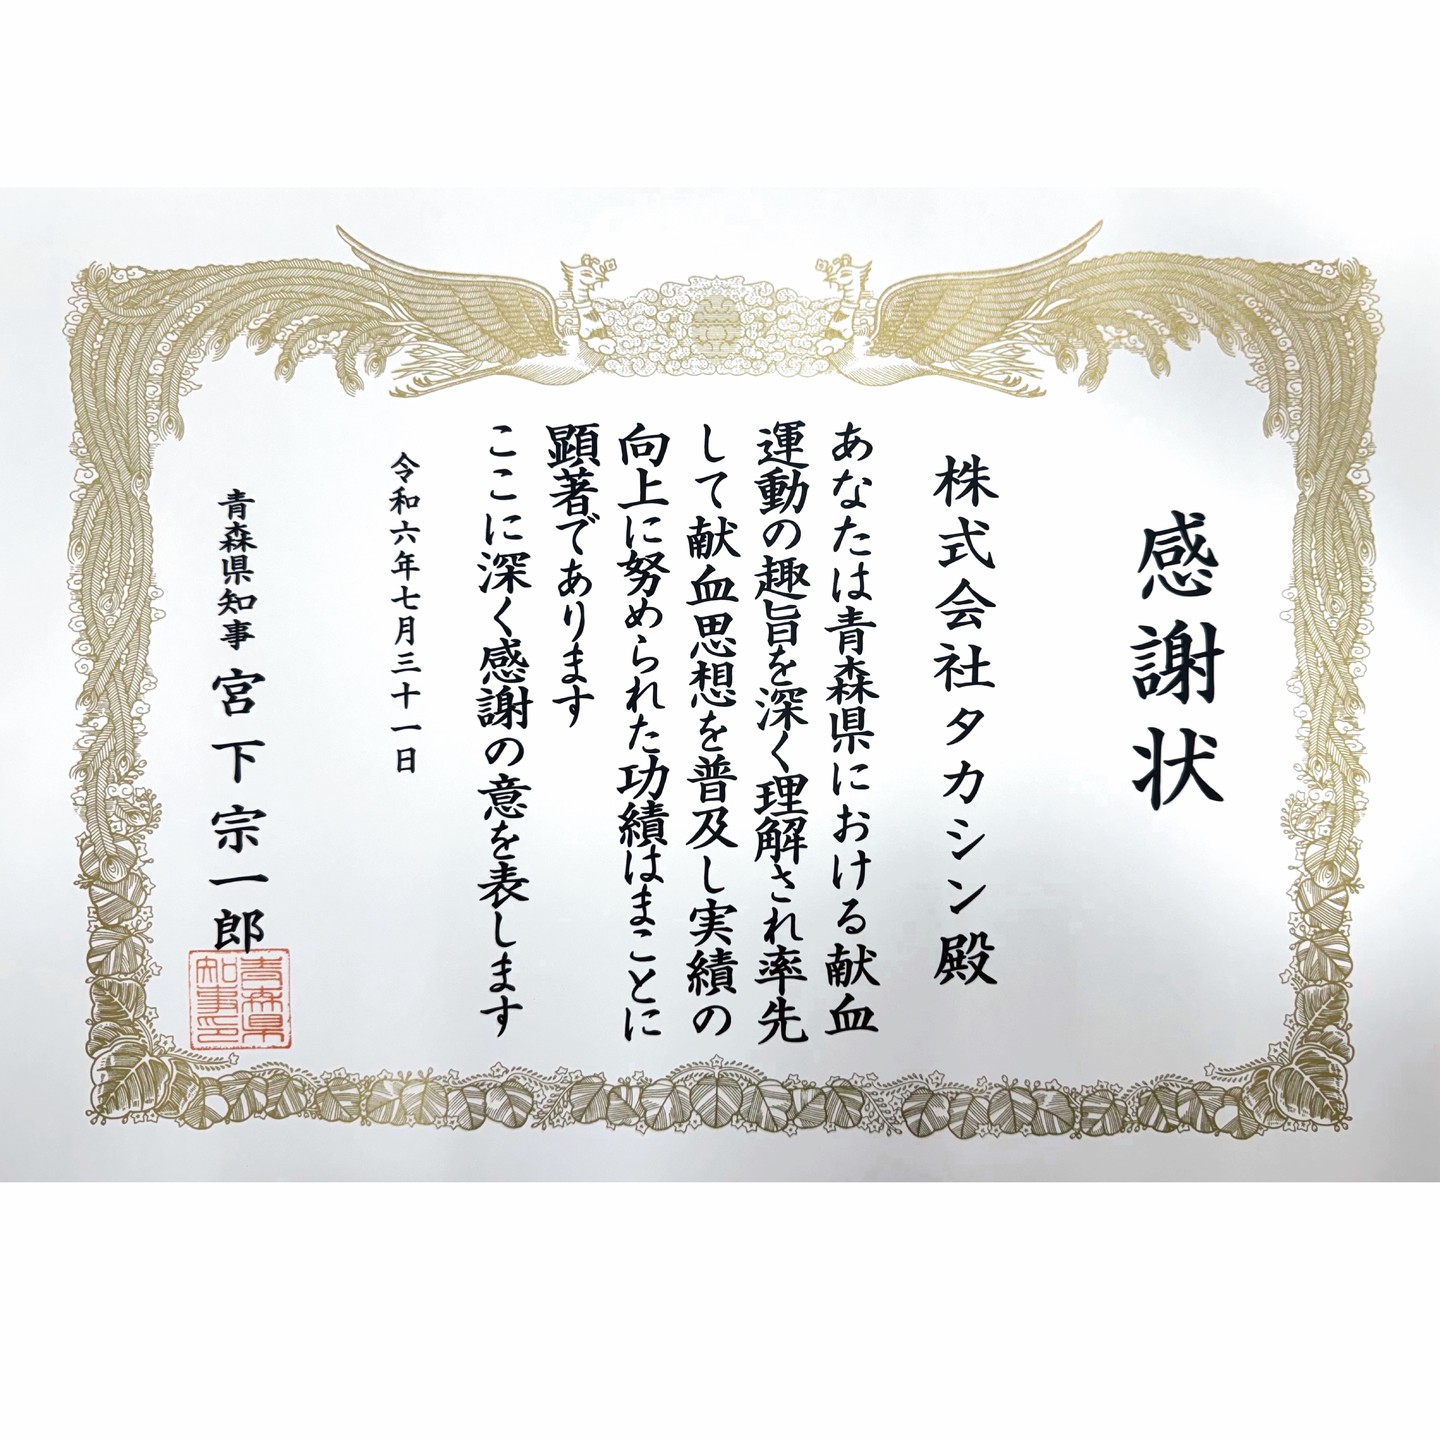 感謝状
株式会社タカシン殿
あなたは青森県における献血
運動の趣旨を深く理解され率先
して献血思想を普及し実績の
向上に努められた功績はまことに
顕著であります
ここに深く感謝の意を表します
令和六年七月三十一日
青森県知事 宮下宗一郎
青森県
知事印